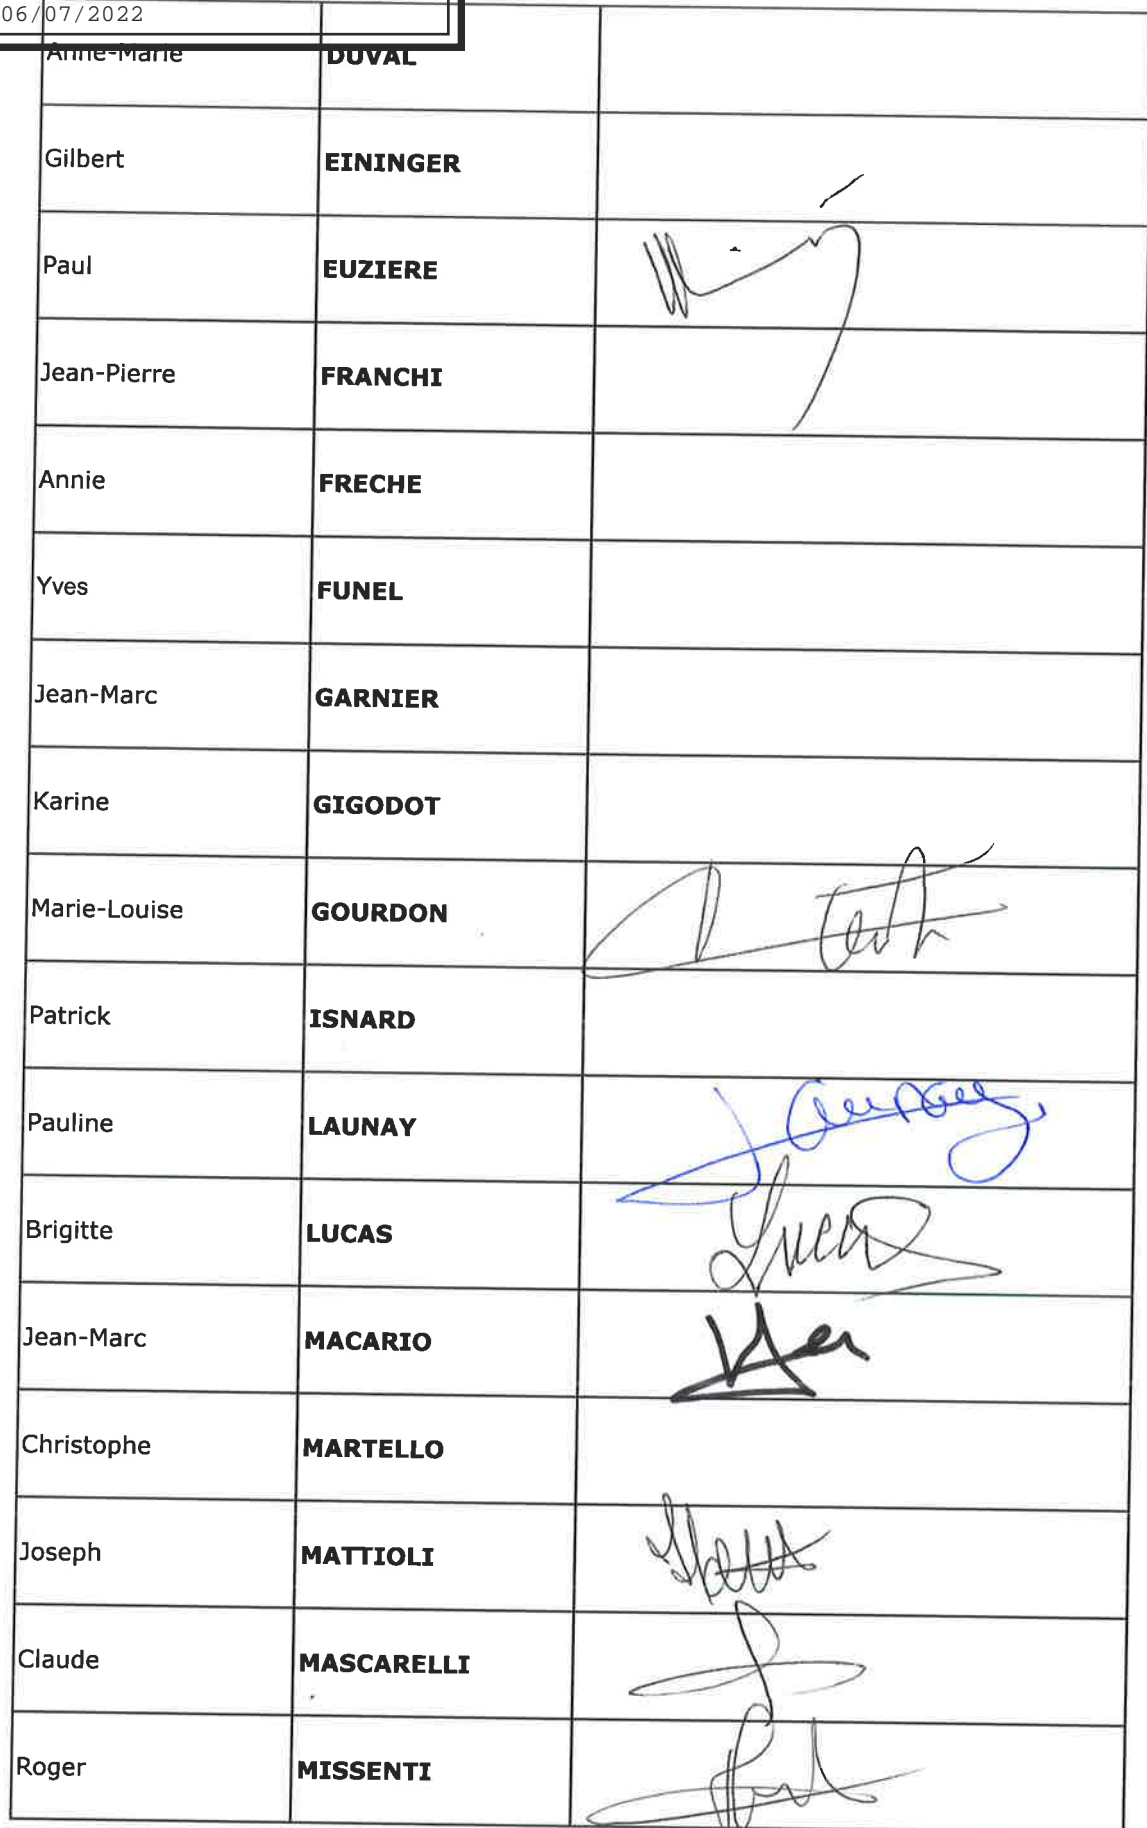 06/07/2022
Anne-Marie DUVAL
Gilbert EININGER
Paul EUZIERE
Jean-Pierre FRANCHI
Annie FRECHE
Yves FUNEL
Jean-Marc GARNIER
Karine GIGODOT
Marie-Louise GOURDON
Patrick ISNARD
Pauline LAUNAY Launay
Brigitte LUCAS Lucas
Jean-Marc MACARIO
Christophe MARTELLO
Joseph MATTIOLI
Claude MASCARELLI
Roger MISSENTI